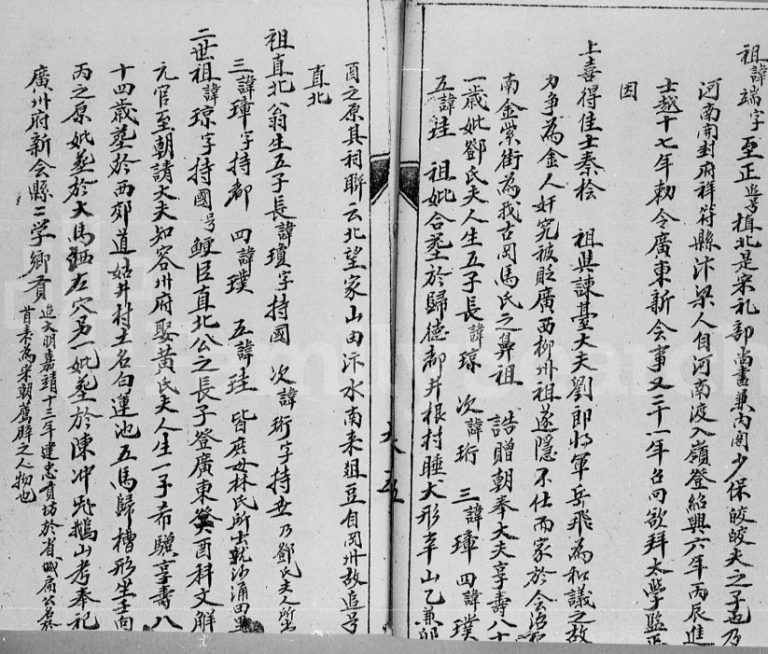 祖諱端字至正號植北是宋礼部尚書兼内閣少保皎皎夫之子也乃
河南開封府祥符縣汴梁人自河南渡入嶺登紹興六年丙辰進
士越十七年勅令廣東新会事又三十一年召回欲拜太学監正
因
上喜得佳士秦桧 祖與諫臺大夫劉郎將軍岳飛為和議之故
力爭為金人奸宄被貶廣西柳州祖遂隱不仕而家於会
南金紫街為我古岡馬氏之鼻祖 誥贈朝奉大夫享壽八十
一歲妣鄧氏夫人生五子長諱琼 次諱珩 三諱璋 四諱璞
五諱珪 祖妣合塟於歸德都井根村睡犬形辛山乙兼卯
酉之原其祠聯云北望家山由汴水南来俎豆自岡州故追号
直北
祖直北翁生五子長諱瓊字持國 次諱珩字持世乃鄧氏夫人所生
三諱璋字持都 四諱璞 五諱珪 皆庶母林氏所士就沙涌田里
二世祖諱琼字持國号鯁臣直北公之長子登廣東癸酉科文解
元官至朝請大夫知容州府娶黄氏夫人生一子希驄享壽八
十四歲塟於西郊道姑井村土名白蓮池五馬歸槽形坐壬向
丙之原妣塟於大馬山左穴另一妣塟於陳冲飛鵝山考奉祀
廣州府新会縣二学鄉賢迨大明嘉靖十三年建忠貢坊於省城扁公
首来為宋朝舊勝之人物也
大五